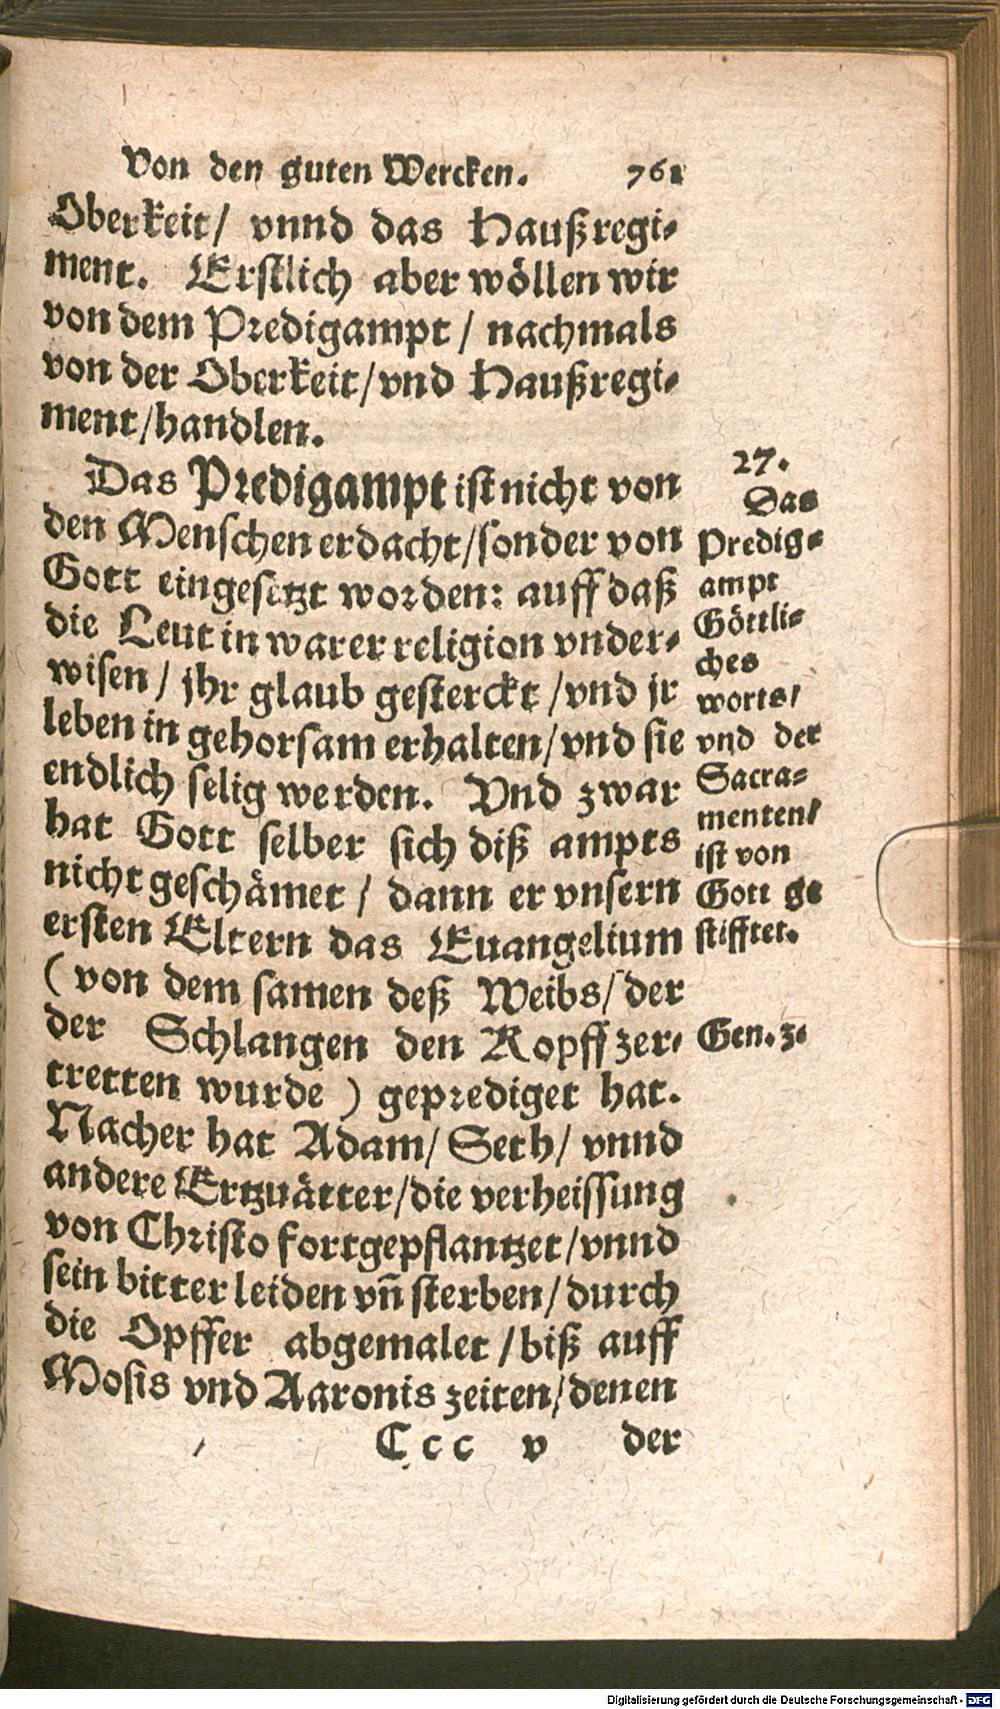 Von den guten Wercken. 761
Oberkeit/ vnnd das Haußregi-
ment. Erstlich aber wöllen wir
von dem Predigampt / nachmals
von der Oberkeit/vnd Haußregi-
ment/handlen.
Das Predigampt ist nicht von
den Menschen erdacht/sonder von
Gott eingesetzt worden: auff daß
die Leut in warer religion vnder-
wisen / jhr glaub gesterckt /vnd jr
leben in gehorsam erhalten/vnd sie
endlich selig werden. Vnd zwar
hat Gott selber sich diß ampts
nicht geschämet / dann er vnsern
ersten Eltern das Euangelium
(von dem samen deß Weibs/ der
der Schlangen den Kopff zer-
tretten wurde ) geprediget hat.
Nacher hat Adam/ Seth/ vnnd
andere Ertzuätter/die verheissung
von Christo fortgepflantzet/vnnd
sein bitter leiden vn̄ sterben/durch
die Opffer abgemalet /biß auff
Mosis vnd Aaronis zeiten/denen
Ccc v der
27.
Das
Predig-
ampt
Göttli-
ches
worts/
vnd der
Sacra-
menten/
ist von
Gott ge
stifftet.
Gen. 3.
Digitalisierung gefördert durch die Deutsche Forschungsgemeinschaft - DFG